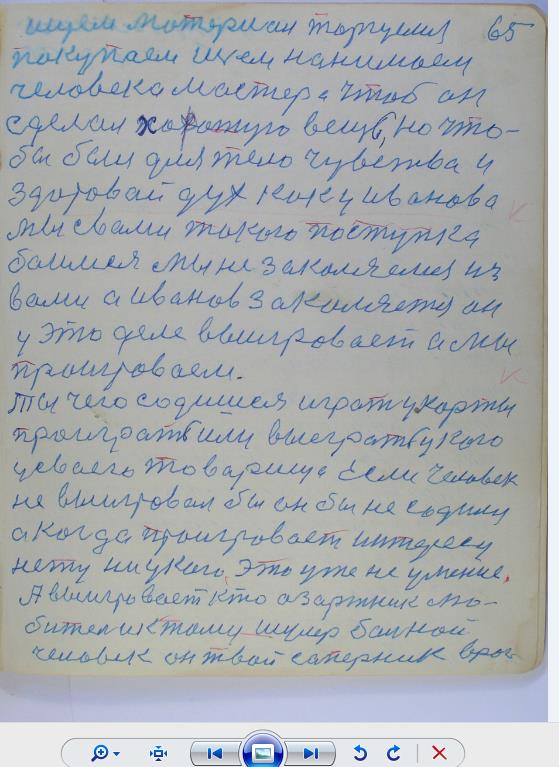 65
ищем материал торгуемся
покупаем ищем нанимаем
человека мастера чтоб он
сделал хорошую вещь, но что-
бы были для тело чувства и
здоровай дух как у иванова
мы свами такого поступка
боимся мы не закаляемся из
вами а иванов закаляется он
у это деле выигровает а мы
проигроваем.
ты чего садишся играт у карты
проигратъ или выегратъ у кого
у сваего товарища Если человек
не выигровал бы он бы не садился
а когда проигровает интересу
нету ни у кого, Это уже не умение.
А выигровает кто азартник лю-
бител и ктому шулер балной
человек он твой саперник враг